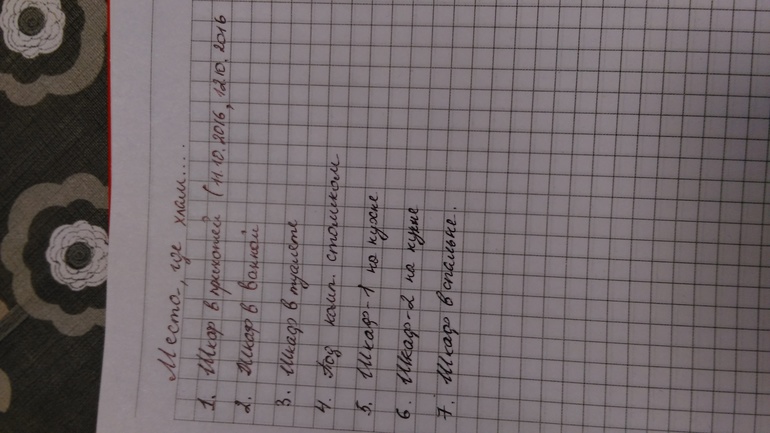 Место, где хлам....
1. Шкаф в прихожей (11.10.2016, 12.10.2016
2. Шкаф в ванной
3. Шкаф в туалете
4. Под комп. столиком
5. Шкаф-1 на кухне
6. Шкаф-2 на кухне
7. Шкаф в спальне.